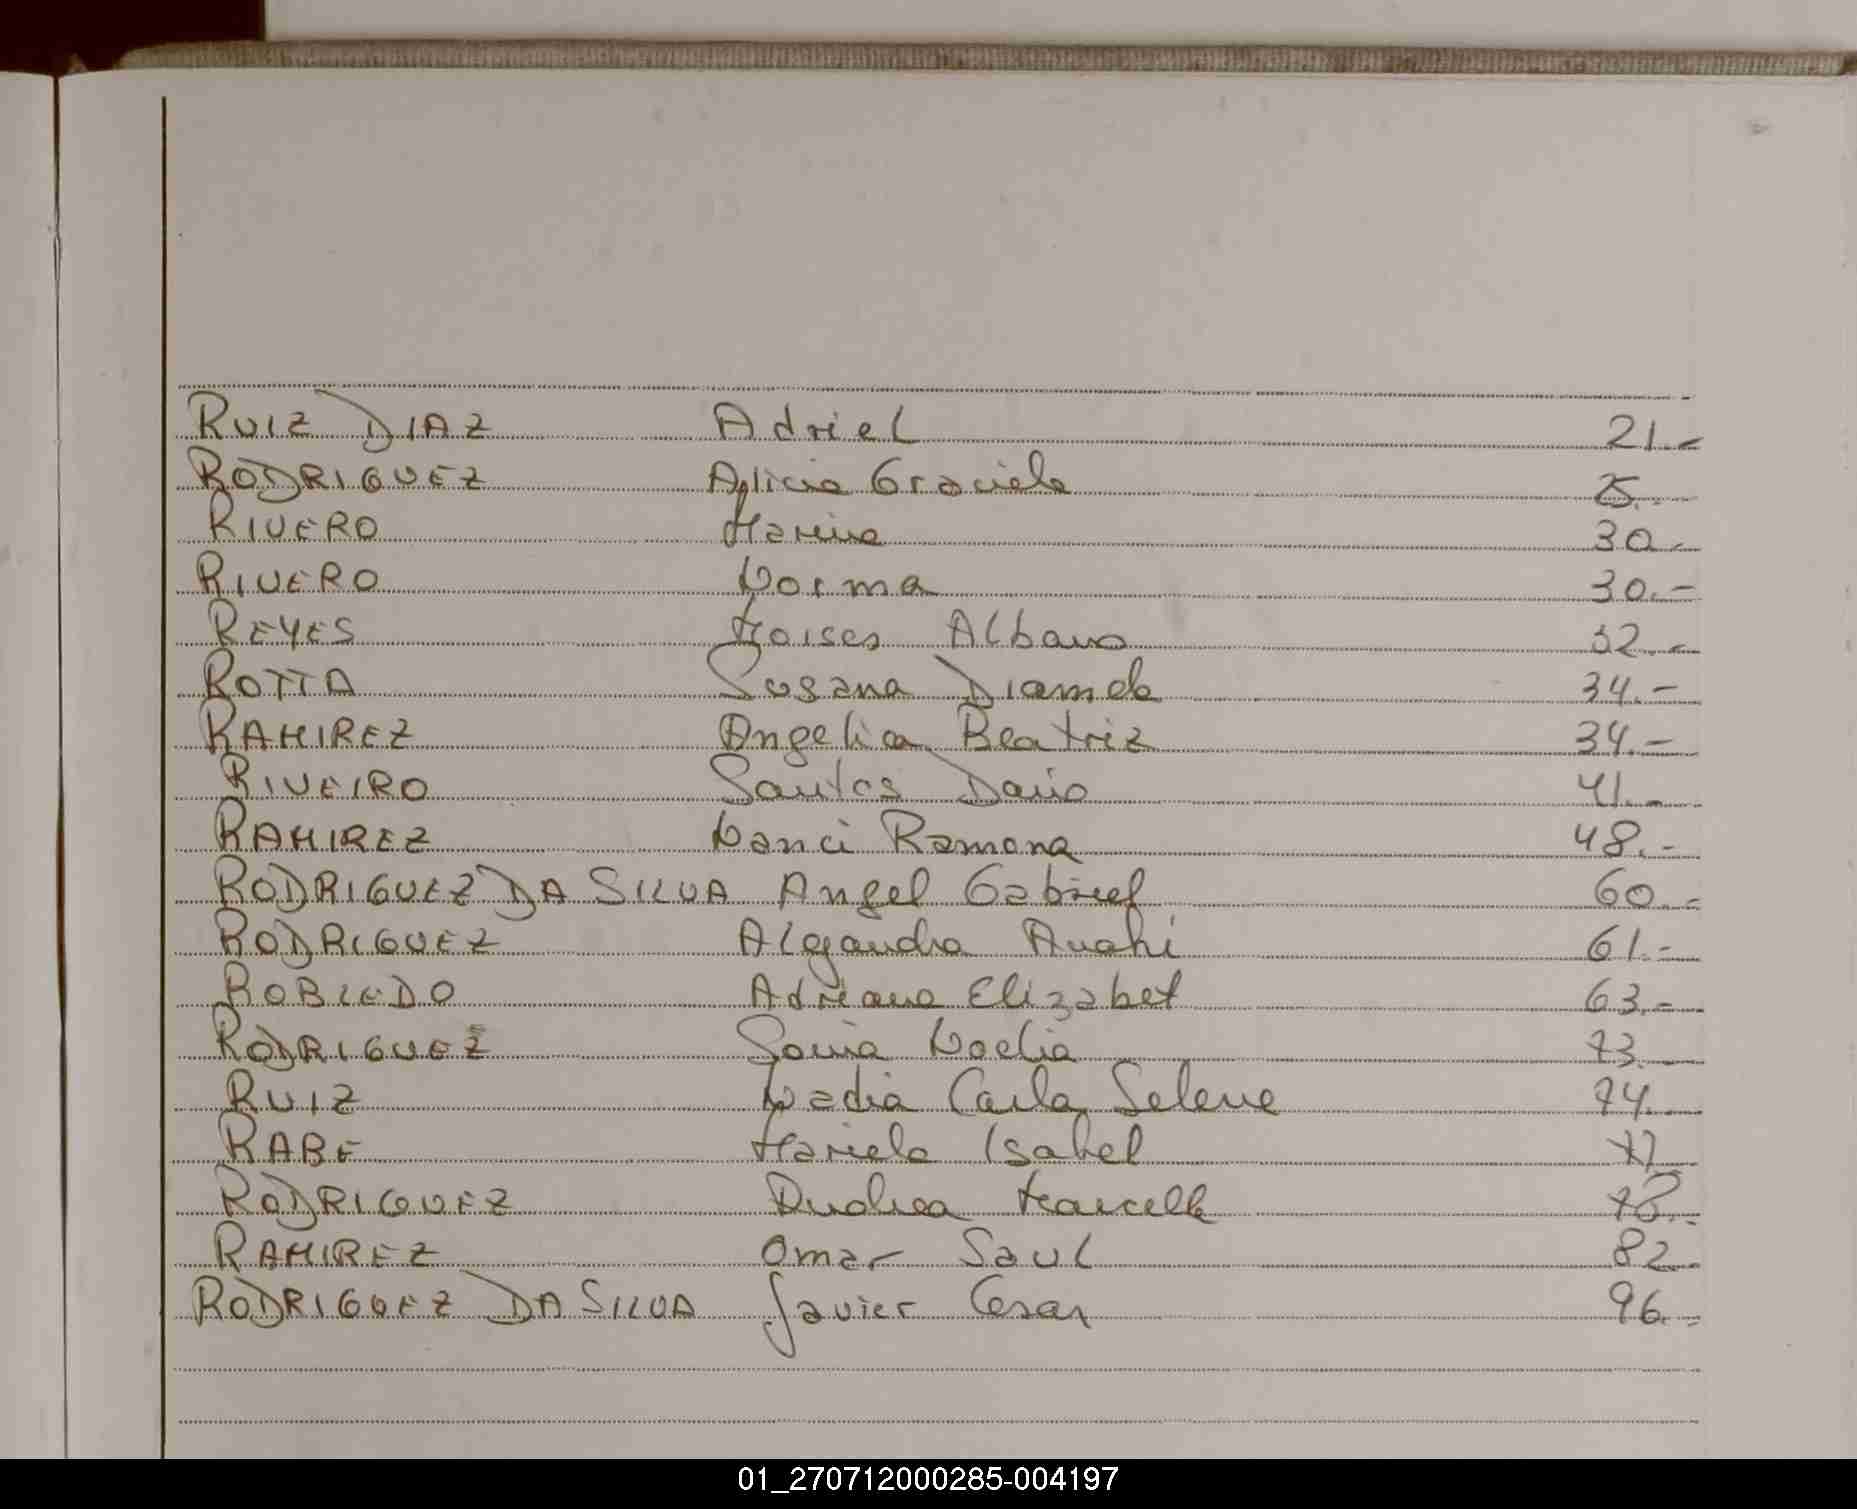 RUIZ DIAZ Adriel 21.-
RODRIGUEZ Alicia Graciela 25.-
RIVERO Marina 30.-
RIVERO Norma 30.-
REYES Moises Albano 32.-
ROTTA Susana Diamela 34.-
RAMIREZ Angelica Beatriz 34.-
RIVEIRO Santos Dario 41.-
RAMIREZ Nanci Ramona 48.-
RODRIGUEZ DA SILVA Angel Gabriel 60.-
RODRIGUEZ Alejandra Anahi 61.-
ROBLEDO Adriana Elizabet 63.-
RODRIGUEZ Sonia Noelia 73.-
RUIZ Nadia Carla Selene 74.-
RABE Mariela Isabel 77.-
RODRIGUEZ Andrea Marcela 78.-
RAMIREZ Omar Saul 82.-
RODRIGUEZ DA SILVA Javier Cesar 96.-
01_270712000285-004197